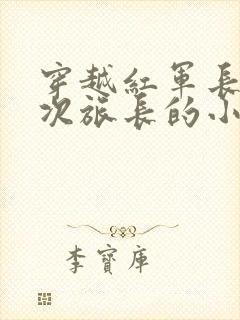 穿越紅軍長
次旅長的小
李寶庫